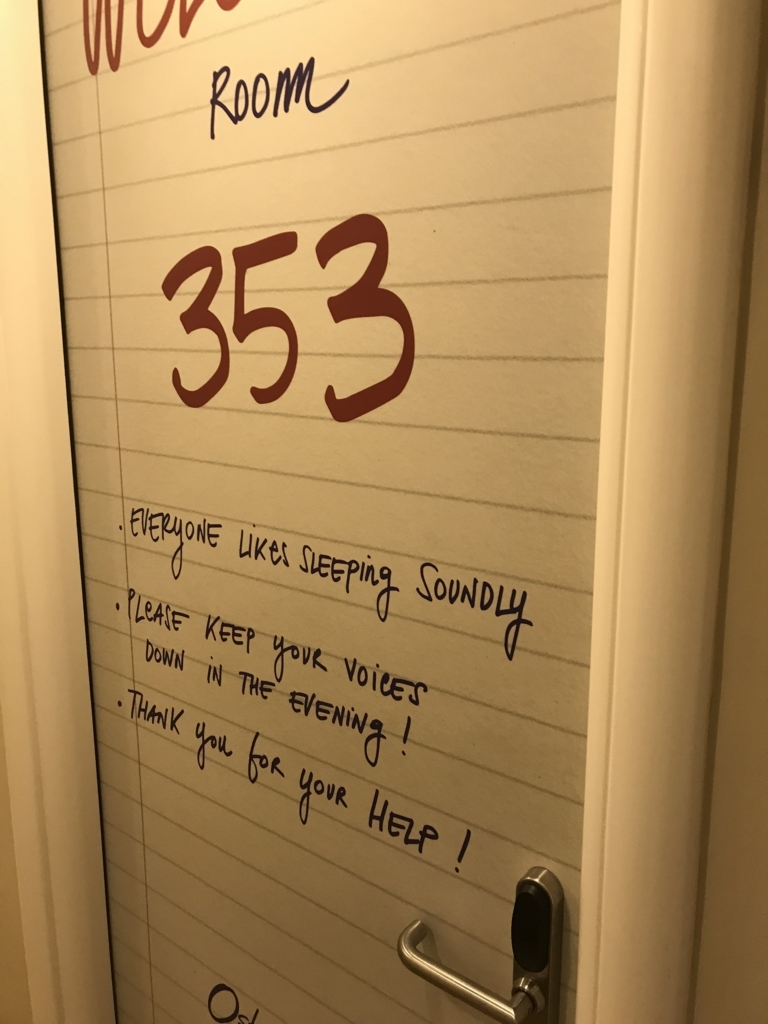 ROOM
353
· EVERYONE LIKES SLEEPING SOUNDLY
· PLEASE KEEP YOUR VOICES
DOWN IN THE EVENING!
· THANK YOU FOR YOUR HELP!